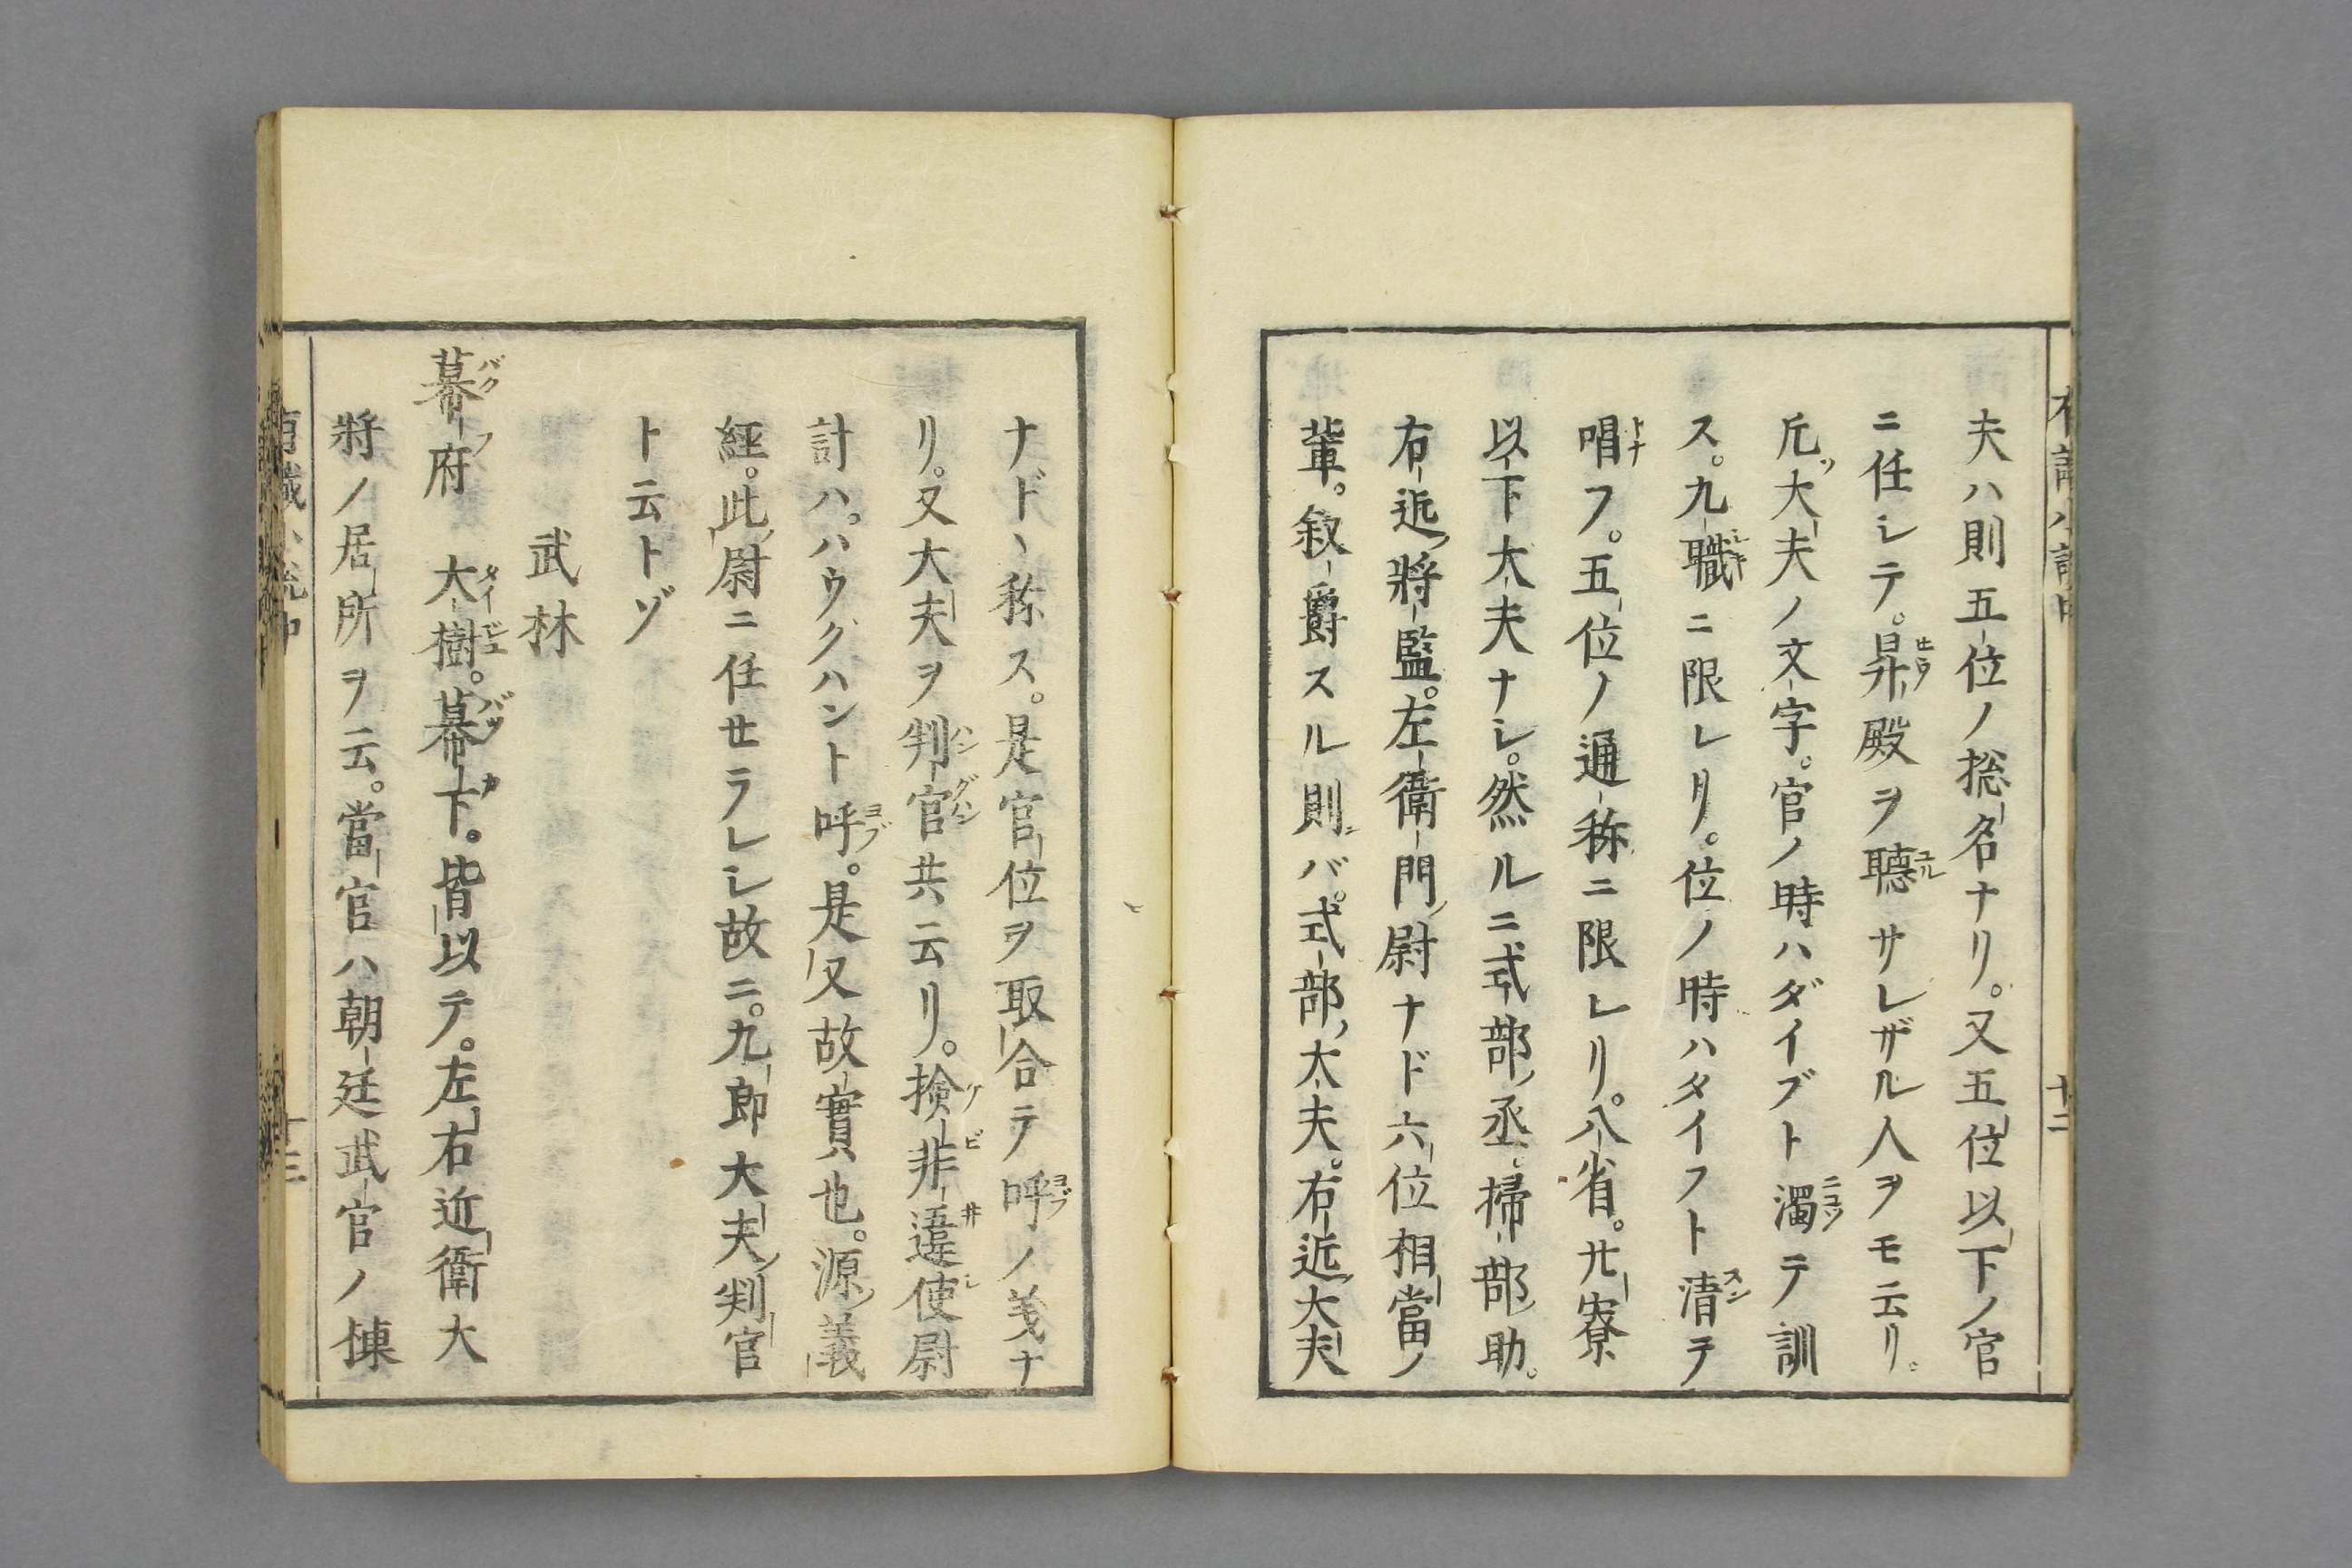 夫ハ則五位ノ捴名ナリ。又五位以下ノ官
ニ任シテ。昇殿ヲ聴サレザル人ヲモ云リ。
凡大夫ノ文字。官ノ時ハダイブト濁テ訓
ス。九職ニ限レリ。位ノ時ハタイフト清テ
唱フ。五位ノ通称ニ限レリ。八省。廿寮
以下大夫ナシ。然ルニ式部丞。掃部助。
右近将監。左衛門尉ナド六位相當ノ
輩。叙爵スル則バ。式部大夫。右近大夫
ナドヽ称ス。是官位ヲ取合テ呼ノ義ナ
リ。又大夫ヲ判官共云リ。撿非違使尉
計ハ。ハウグハント呼。是又故實也。源義
經。此尉ニ任セラレシ故ニ。九郎大夫判官
ト云トゾ
武林
幕府 大樹。幕下。皆以テ。左右近衛大
將ノ居所ヲ云。當官ハ朝廷武官ノ棟
十三